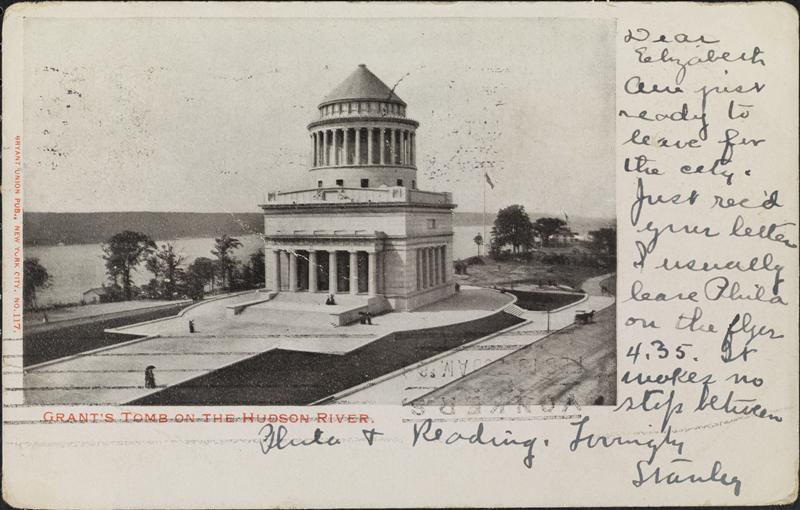 BRYANT UNION PUB., NEW YORK CITY. NO. 117.
GRANT'S TOMB ON THE HUDSON RIVER.
Dear
Elizabeth
Am just
ready to
leave for
the city.
Just rec'd
your letter
I usually
leave Phila
on the flyer
4.35. It
makes no
stop between
Phila + Reading. Lovingly
Stanley
YONKERS